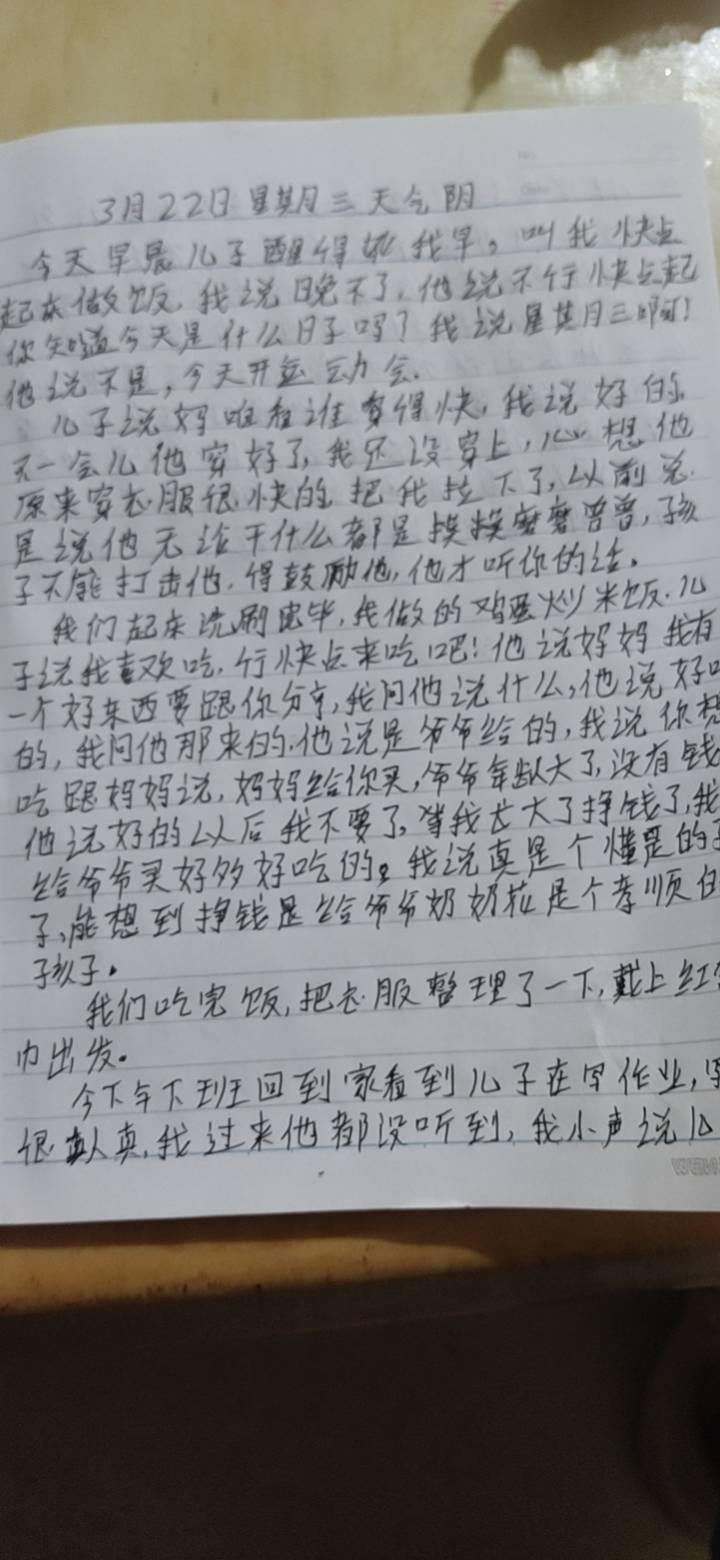 3月22日 星期三 天气 阴
今天早晨儿子醒得比我早，叫我快点
起来做饭，我说晚不了，他说不行快点起
你知道今天是什么日子吗？我说星期三啊！
他说不是，今天开运动会。
儿子说妈咱看谁穿得快，我说好的
不一会儿他穿好了，我还没穿上，心想他
原来穿衣服很快的 把我拉下了，以前总
是说他无论干什么都是摸摸磨磨曾曾，孩
子不能打击他，得鼓励他，他才听你的话。
我们起来洗刷完毕，我做的鸡蛋炒米饭，儿
子说我喜欢吃，行快点来吃吧！他说妈妈我有
一个好东西要跟你分享，我问他说什么，他说好吃
的，我问他那来的，他说是爷爷给的，我说你想
吃跟妈妈说，妈妈给你买，爷爷年龄大了，没有钱
他说好的以后我不要了，等我长大了挣钱了，我
给爷爷买好多好吃的。我说真是个懂是的
子，能想到挣钱是给爷爷奶奶花是个孝顺
孩子。
我们吃完饭，把衣服整理了一下，戴上红
巾出发。
今下午下班回到家看到儿子在写作业，写
很认真，我过来他都没听到，我小声说儿